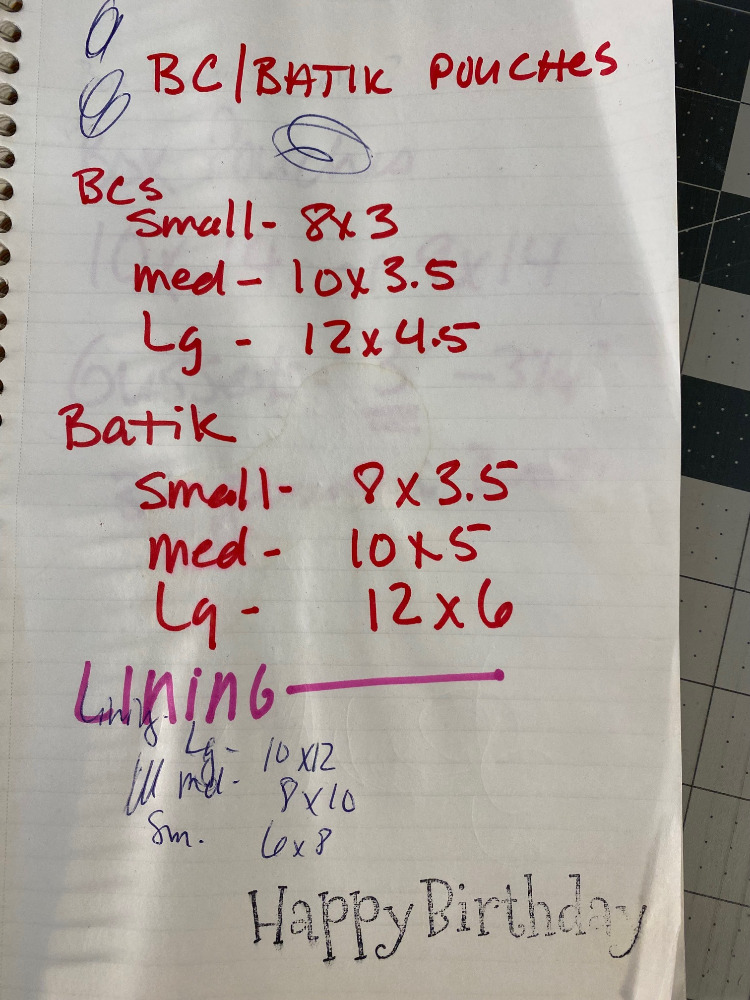 BC/BATIK POUCHES
BCs
Small- 8x3
med- 10x3.5
Lg - 12x4.5
Batik
Small- 8x3.5
med- 10x5
Lg- 12x6
LINING
Lining-
Lg- 10x12
md- 8x10
Sm. 6x8
Happy Birthday